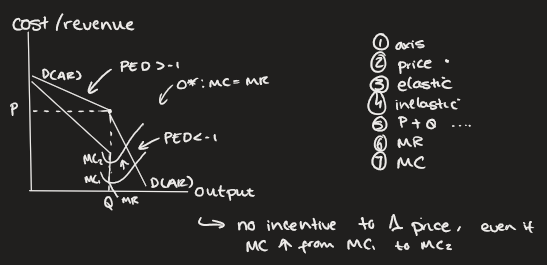 cost/revenue
D(AR)
PED > -1
O*: MC = MR
P
PED < -1
MC₂
MC₁
D(AR)
output
Q
MR
① axis
② price •
③ elastic
④ inelastic
⑤ P + Q ....
⑥ MR
⑦ MC
↳ no incentive to Δ price, even if
MC ↑ from MC₁ to MC₂